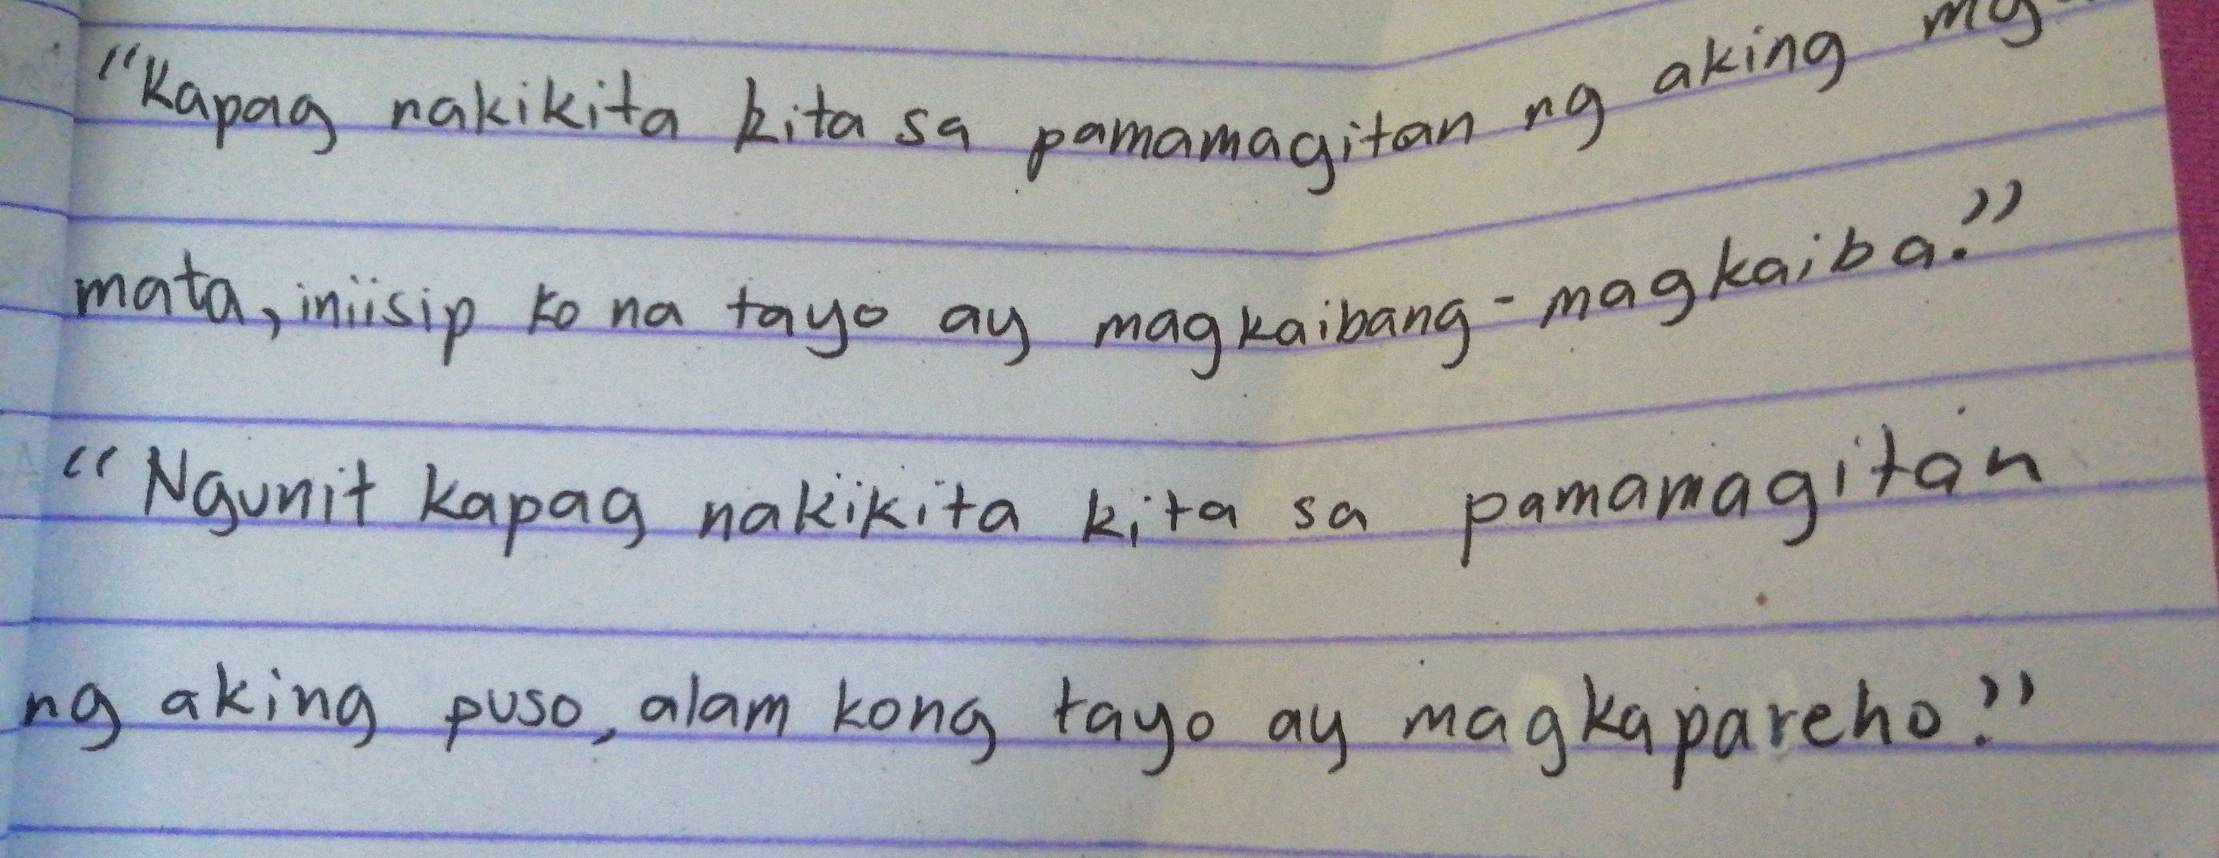 "Kapag nakikita kita sa pamamagitan ng aking mg
mata, iniisip ko na tayo ay magkaibang-magkaiba."
"Ngunit kapag nakikita kita sa pamamagitan
ng aking puso, alam kong tayo ay magkapareho."